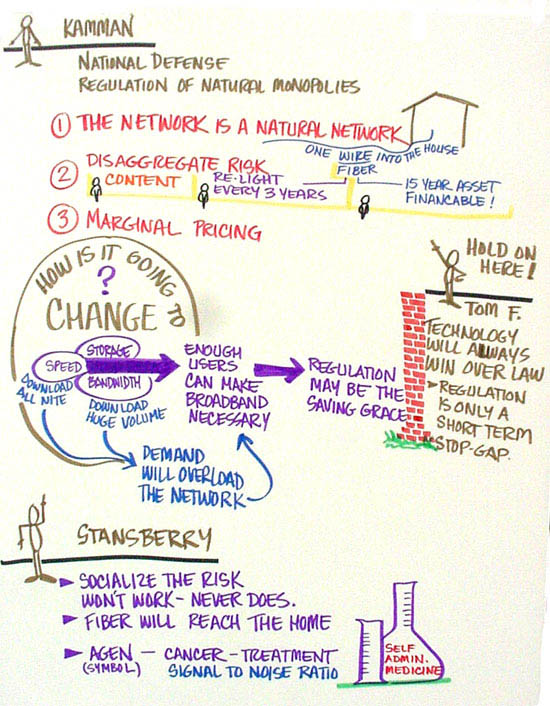 KAMMAN
NATIONAL DEFENSE
REGULATION OF NATURAL MONOPOLIES
① THE NETWORK IS A NATURAL NETWORK
ONE WIRE INTO THE HOUSE
② DISAGGREGATE RISK
FIBER
CONTENT
RE-LIGHT
EVERY 3 YEARS
15 YEAR ASSET
FINANCABLE!
③ MARGINAL PRICING
HOW IS IT GOING TO
?
CHANGE
STORAGE
SPEED
BANDWIDTH
DOWNLOAD
ALL NITE
DOWNLOAD
HUGE VOLUME
ENOUGH
USERS
CAN MAKE
BROADBAND
NECESSARY
REGULATION
MAY BE THE
SAVING GRACE
DEMAND
WILL OVERLOAD
THE NETWORK
HOLD ON
HERE!
TOM F.
TECHNOLOGY
WILL ALWAYS
WIN OVER LAW
REGULATION
IS ONLY A
SHORT TERM
STOP-GAP.
STANSBERRY
SOCIALIZE THE RISK
WON'T WORK - NEVER DOES.
FIBER WILL REACH THE HOME
AGEN - CANCER - TREATMENT
(SYMBOL) SIGNAL TO NOISE RATIO
SELF
ADMIN.
MEDICINE